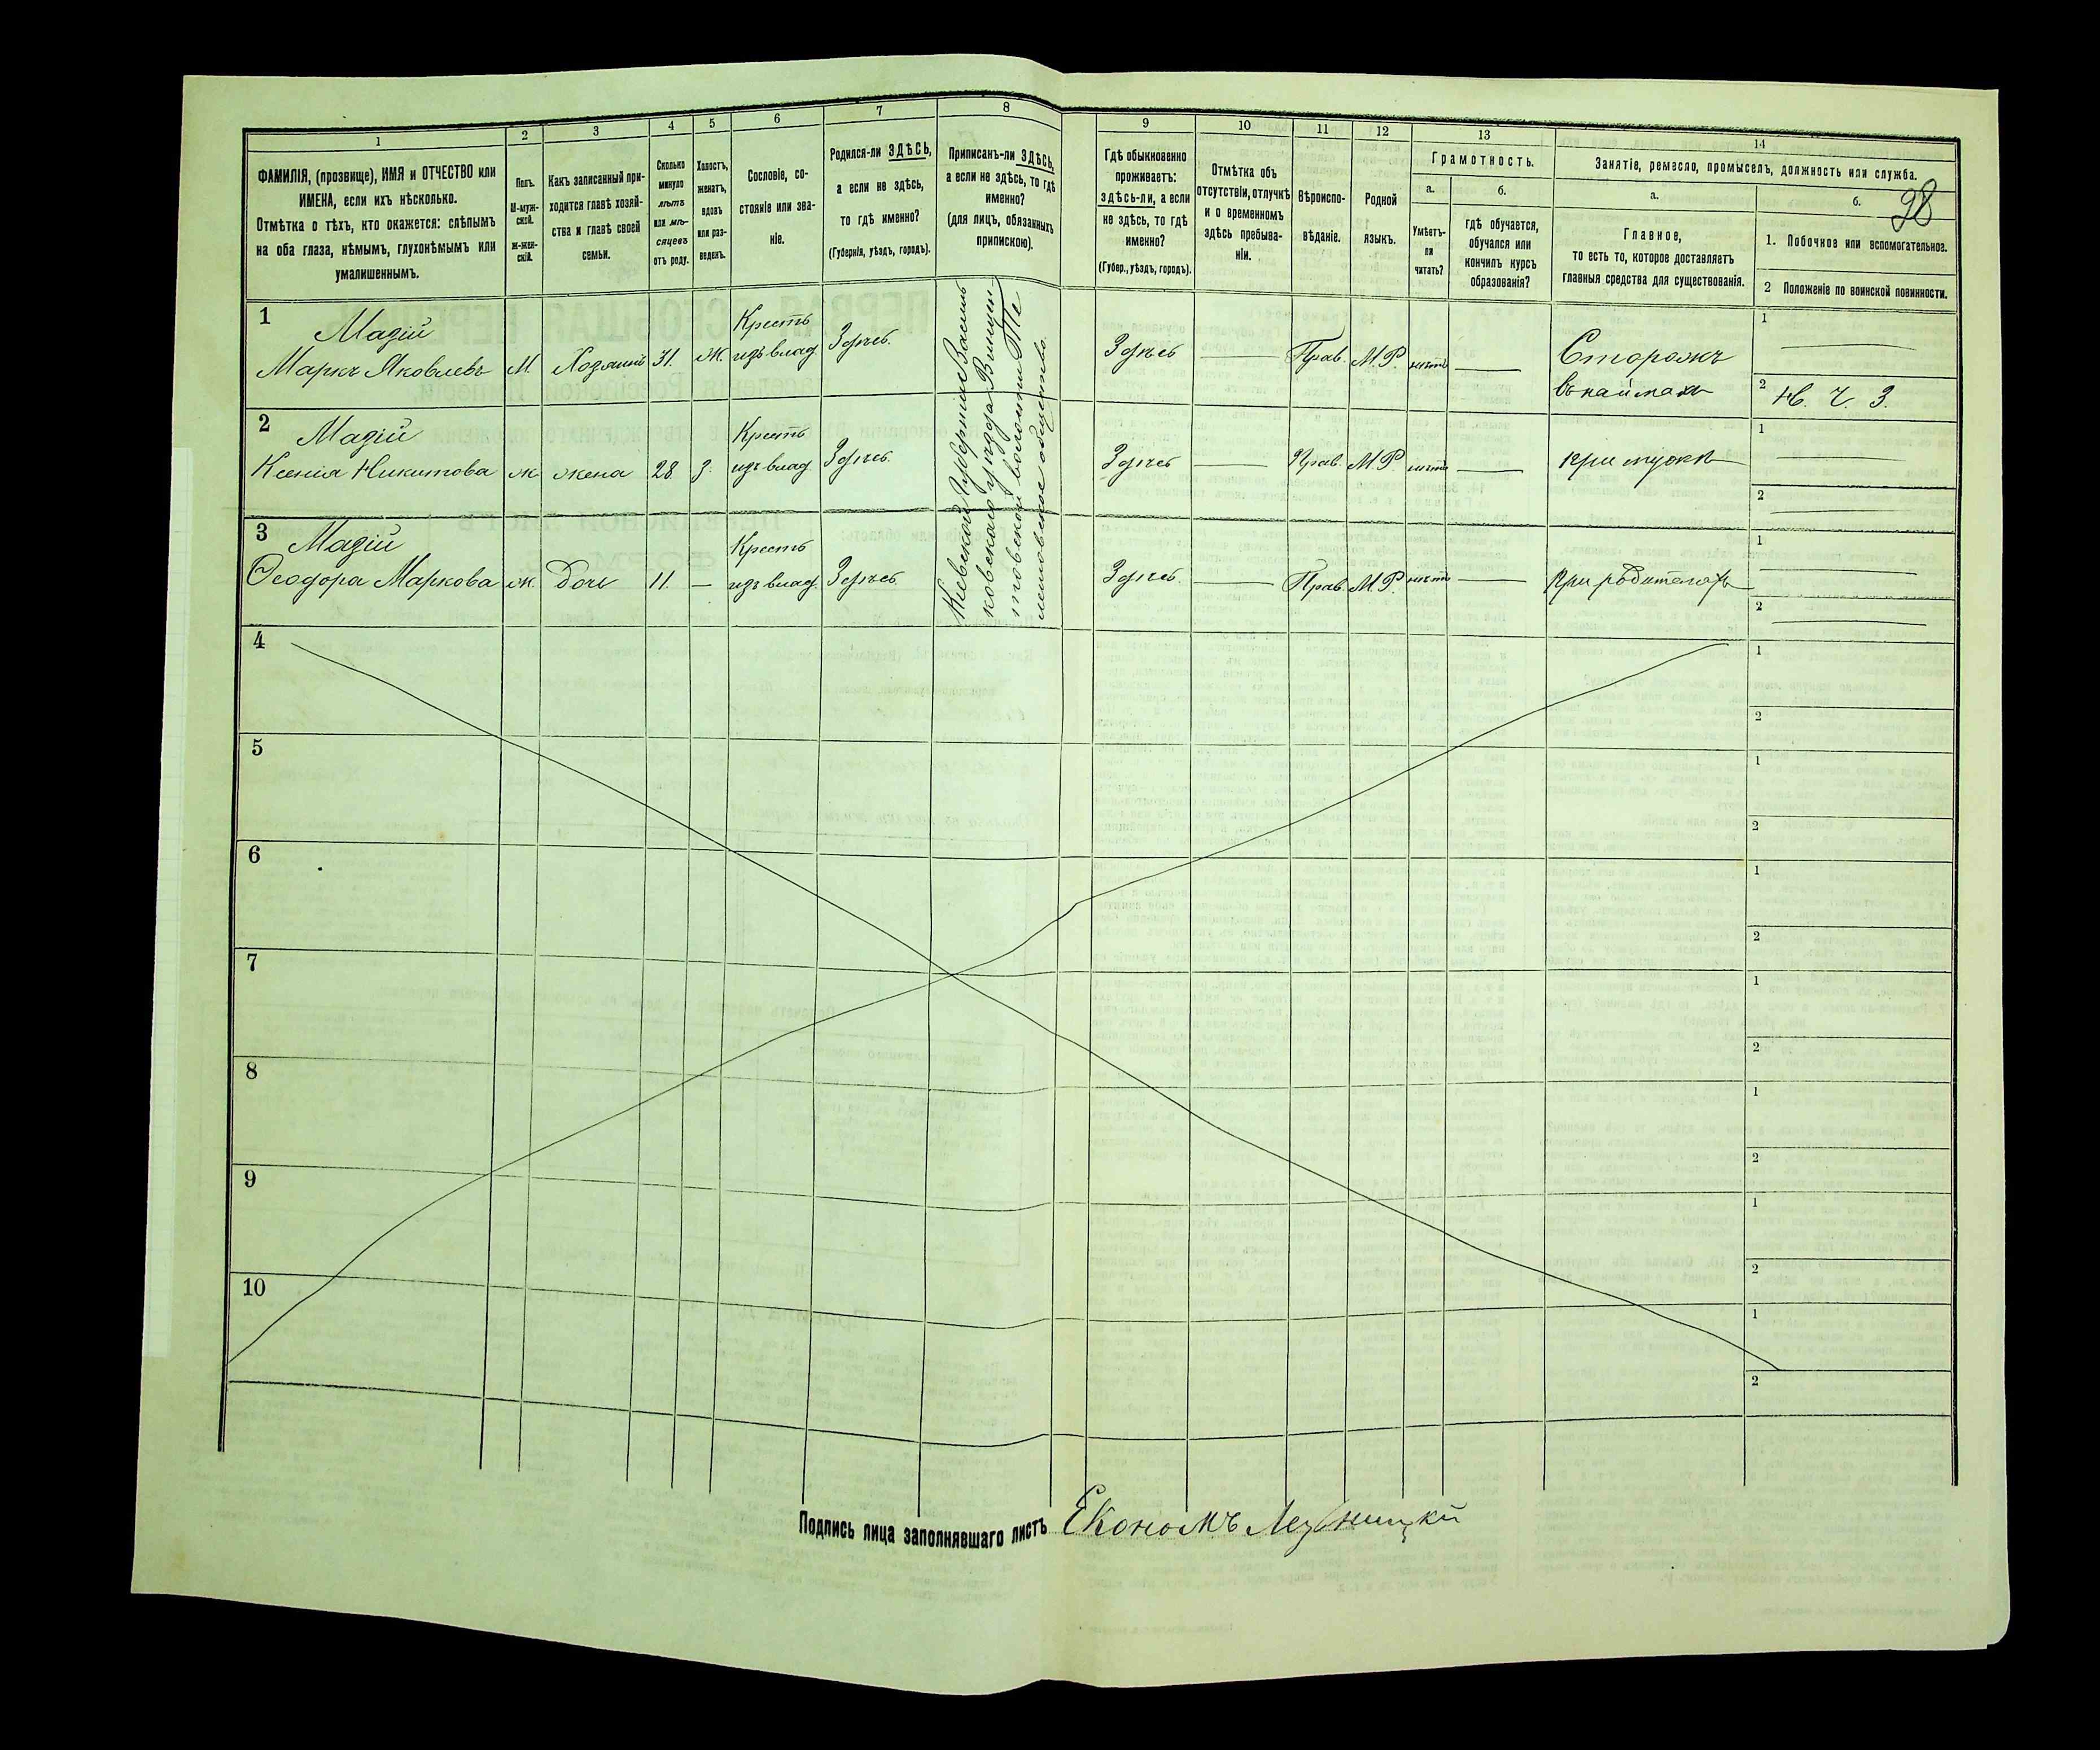 1
2
3
4
5
6
7
8
9
10
11
12
13
14
ФАМИЛІЯ, (прозвище), ИМЯ и ОТЧЕСТВО или
ИМЕНА, если ихъ нѣсколько.
Отмѣтка о тѣхъ, кто окажется: слѣпымъ
на оба глаза, нѣмымъ, глухонѣмымъ или
умалишеннымъ.
Полъ.
М-муж-
ской.
Ж-жен-
скій.
Какъ записанный при-
ходится главѣ хозяй-
ства и главѣ своей
семьи.
Сколько
минуло
лѣтъ
или мѣ-
сяцевъ
отъ роду.
Холостъ,
женатъ,
вдовъ
или раз-
веденъ.
Сословіе, со-
стояніе или зва-
ніе.
Родился-ли ЗДѢСЬ,
а если не здѣсь,
то гдѣ именно?
(Губернія, уѣздъ, городъ).
Приписанъ-ли ЗДѢСЬ,
а если не здѣсь, то гдѣ
именно?
(для лицъ, обязанныхъ
припискою).
Гдѣ обыкновенно
проживаетъ:
ЗДѢСЬ-ли, а если
не здѣсь, то гдѣ
именно?
(Губер., уѣздъ, городъ).
Отмѣтка объ
отсутствіи, отлучкѣ
и о временномъ
здѣсь пребыва-
ніи.
Вѣроиспо-
вѣданіе.
Родной
языкъ.
Грамотность.
а.
Умѣетъ-
ли
читать?
б.
гдѣ обучается,
обучался или
кончилъ курсъ
образованія?
Занятіе, ремесло, промыселъ, должность или служба.
а.
Главное,
то есть то, которое доставляетъ
главныя средства для существованія.
б.
28
1. Побочное или вспомогательное.
2 Положеніе по воинской повинности.
1
Мазій
Маркъ Яковлевъ
М
Хозяинъ
31.
Ж.
Крестъ
изъ влад.
Здѣсь.
Кіевской Губерніи Василь
ковскаго уѣзда Винцен-
товской волости
общество
Здѣсь
Прав.
М.Р.
нѣтъ
Сторожъ
въ наймахъ
1
2
Н. Ч. З.
2
Мазій
Ксенія Никитова
ж
жена
28.
З.
Крестъ
изъ влад.
Здѣсь
Здѣсь
Прав.
М.Р
нѣтъ
при мужѣ
1
2
3
Мазій
Ѳеодора Маркова
ж.
Дочь
11.
Крестъ
изъ влад.
Здѣсь
Здѣсь.
Прав.
М.Р.
нѣтъ
при родителяхъ
1
2
4
1
2
5
1
2
6
1
2
7
1
2
8
1
2
9
1
2
10
1
2
Подпись лица заполнявшаго листъ
Економъ